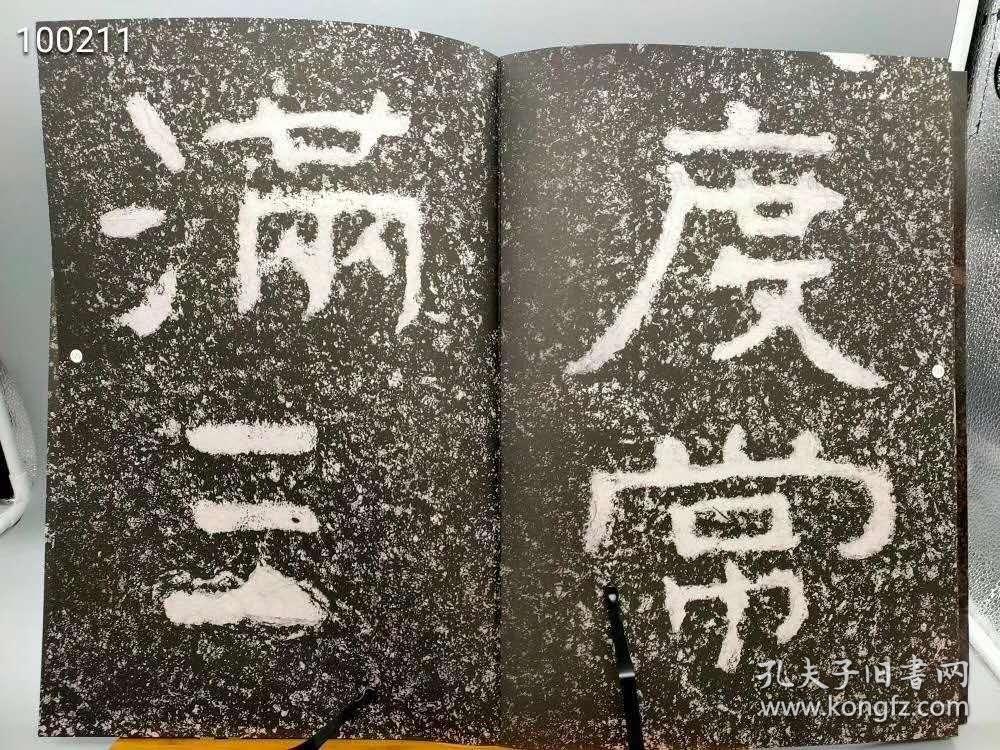 100211
度常
滿三
孔夫子旧書网
www.kongfz.com